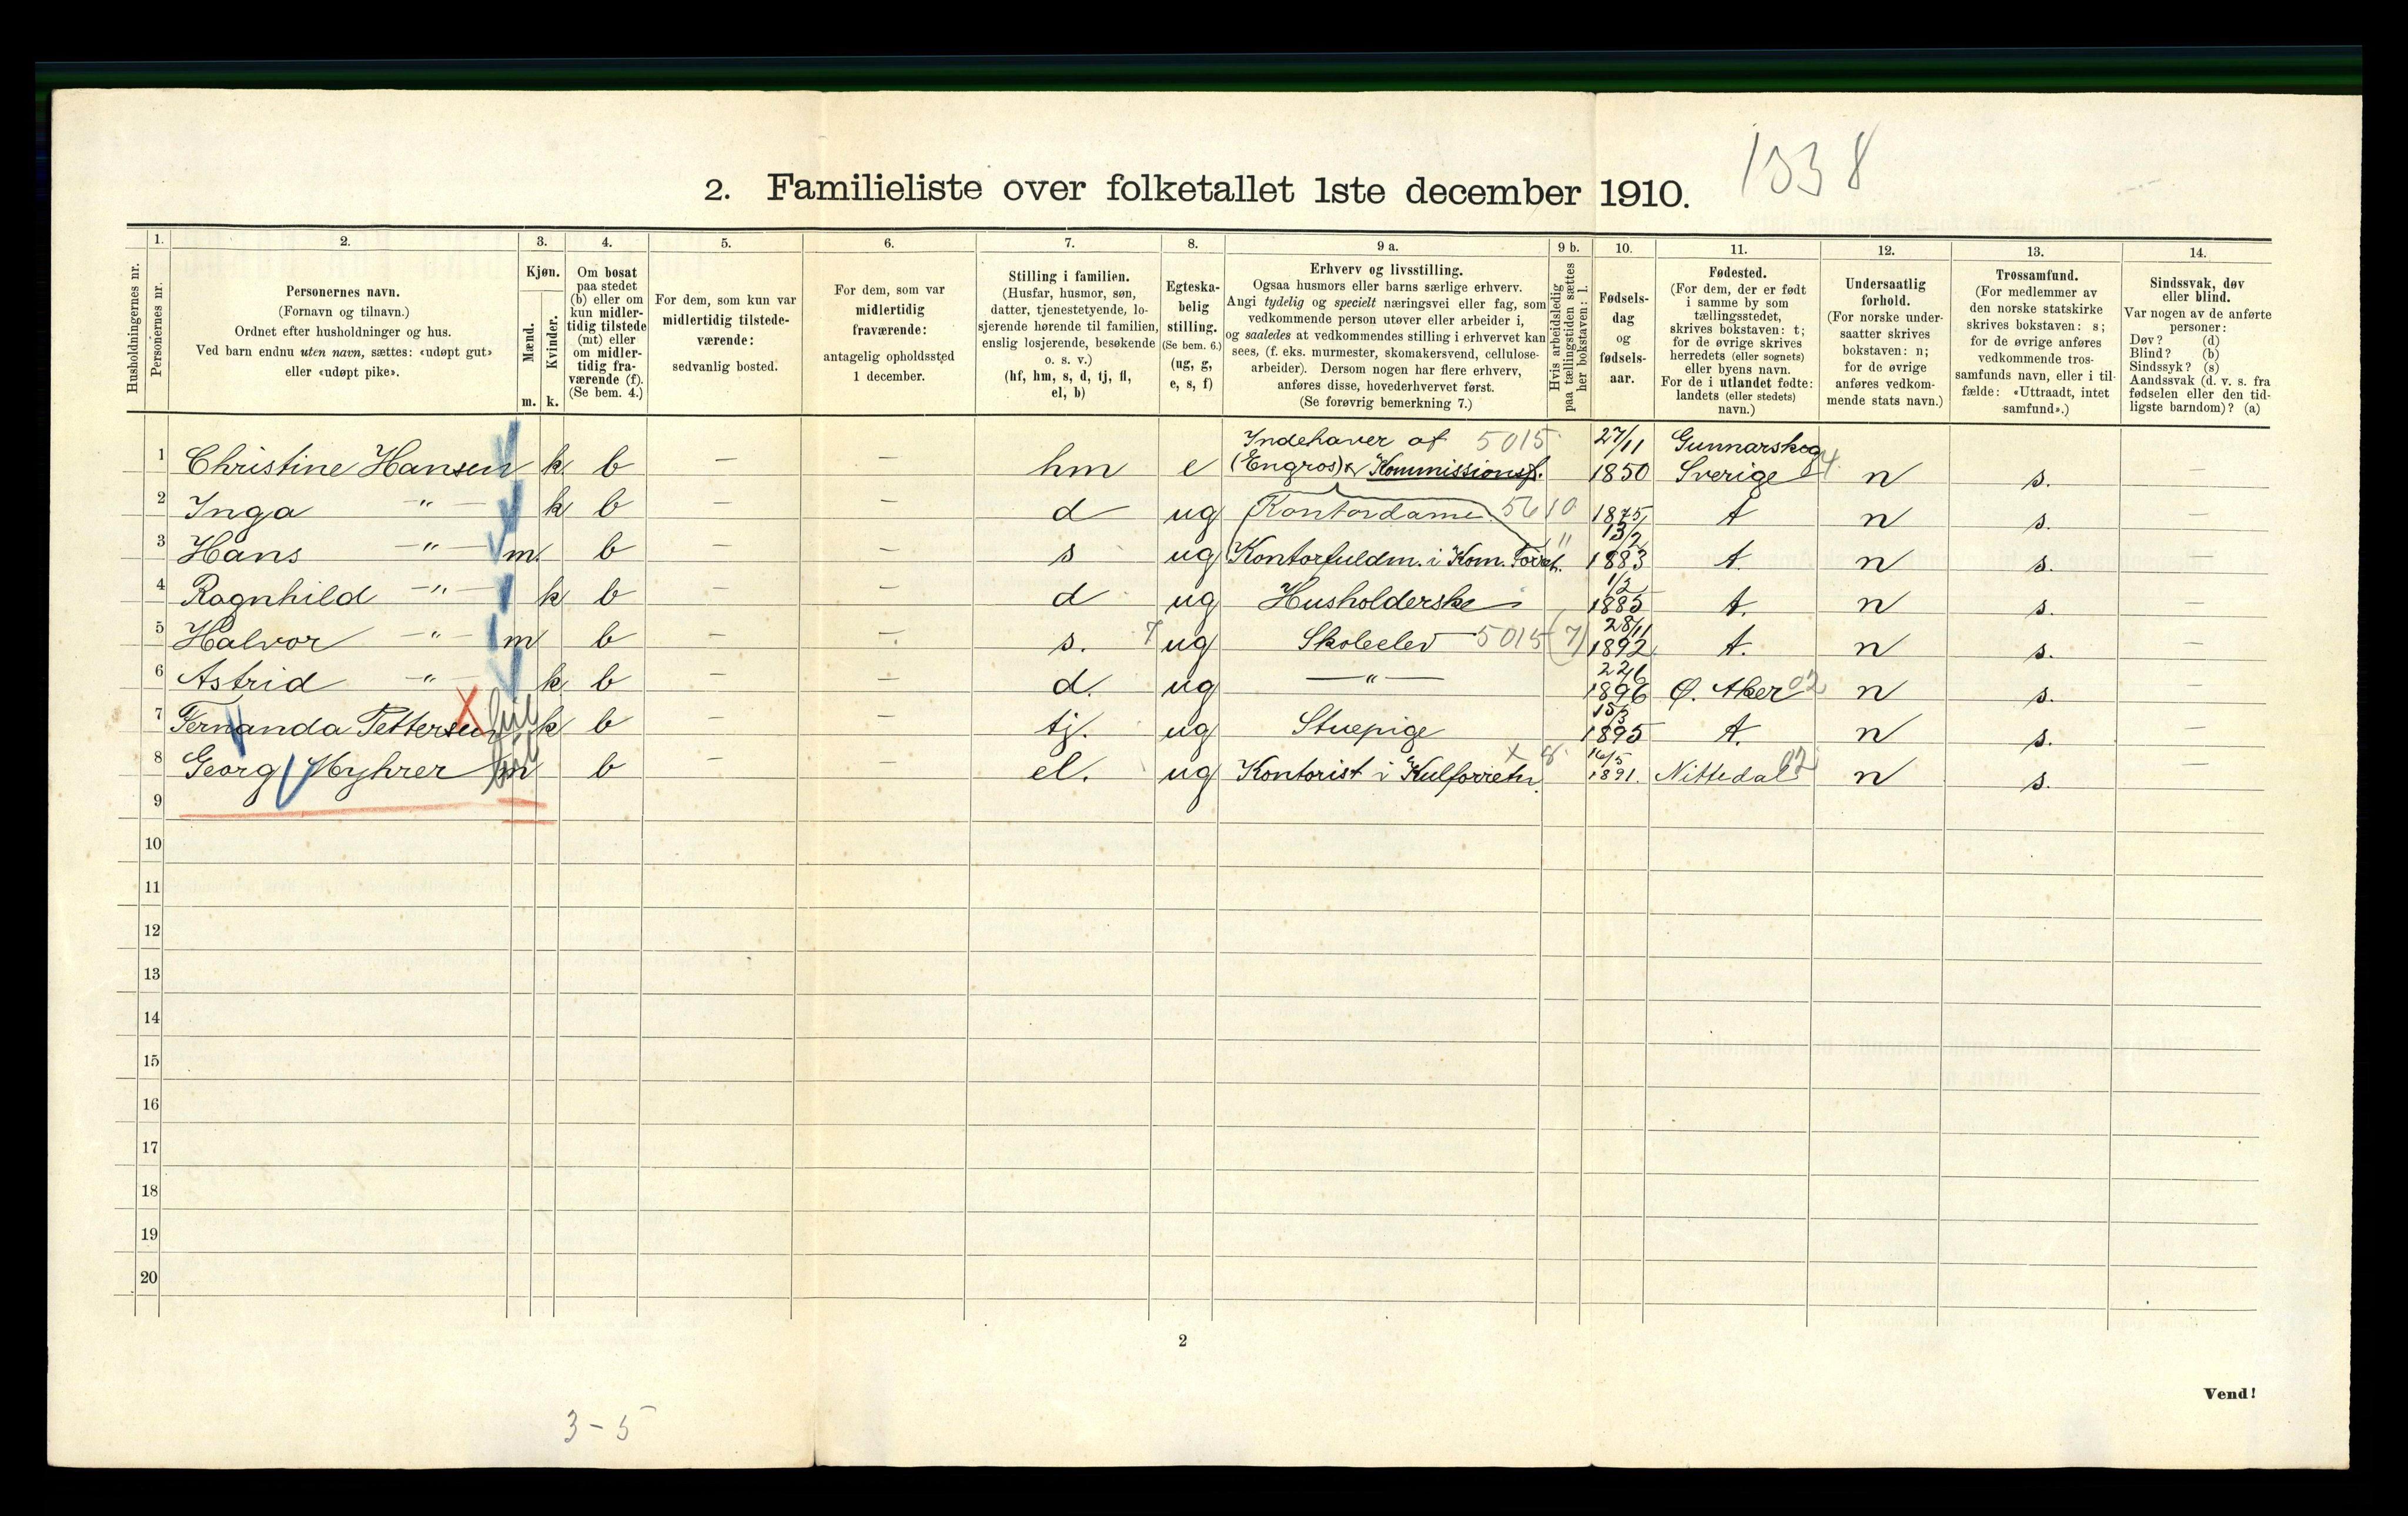 1338
2. Familieliste over folketallet 1ste december 1910.
1. 2. 3. 4. 5. 6. 7. 8. 9 a. 9 b. 10. 11. 12. 13. 14.
Husholdningernes nr.
Personernes nr.
Personernes navn.
(Fornavn og tilnavn.)
Ordnet efter husholdninger og hus.
Ved barn endnu uten navn, sættes: «udøpt gut»
eller «udøpt pike».
Kjøn.
Mænd.
Kvinder.
m. k.
Om bosat
paa stedet
(b) eller om
kun midler-
tidig tilstede
(mt) eller
om midler-
tidig fra-
værende (f).
(Se bem. 4.)
For dem, som kun var
midlertidig tilstede-
værende:
sedvanlig bosted.
For dem, som var
midlertidig
fraværende:
antagelig opholdssted
1 december.
Stilling i familien.
(Husfar, husmor, søn,
datter, tjenestetyende, lo-
sjerende hørende til familien,
enslig losjerende, besøkende
o. s. v.)
(hf, hm, s, d, tj, fl,
el, b)
Egteska-
belig
stilling.
(Se bem. 6.)
(ug, g,
e, s, f)
Erhverv og livsstilling.
Ogsaa husmors eller barns særlige erhverv.
Angi tydelig og specielt næringsvei eller fag, som
vedkommende person utøver eller arbeider i,
og saaledes at vedkommendes stilling i erhvervet kan
sees, (f. eks. murmester, skomakersvend, cellulose-
arbeider). Dersom nogen har flere erhverv,
anføres disse, hovederhvervet først.
(Se forøvrig bemerkning 7.)
Hvis arbeidsledig
paa tællingstiden sættes
her bokstaven: l.
Fødsels-
dag
og
fødsels-
aar.
Fødested.
(For dem, der er født
i samme by som
tællingsstedet,
skrives bokstaven: t;
for de øvrige skrives
herredets (eller sognets)
eller byens navn.
For de i utlandet fødte:
landets (eller stedets)
navn.)
Undersaatlig
forhold.
(For norske under-
saatter skrives
bokstaven: n;
for de øvrige
anføres vedkom-
mende stats navn.)
Trossamfund.
(For medlemmer av
den norske statskirke
skrives bokstaven: s;
for de øvrige anføres
vedkommende tros-
samfunds navn, eller i til-
fælde: «Uttraadt, intet
samfund».)
Sindssvak, døv
eller blind.
Var nogen av de anførte
personer:
Døv? (d)
Blind? (b)
Sindssyk? (s)
Aandssvak (d. v. s. fra
fødselen eller den tid-
ligste barndom)? (a)
Indehaver af 5015 27/11 Gunnarskog
1 Christine Hansen k b — — hm e (Engros) & Kommissionsf. 1850 Sverige n s. —
2 Inga —"— k b — — d ug Kontordame 5610 1875 t n s. —
13/2
3 Hans —"— m. b — — s ug Kontorfuldm. i Kom. Forret. " 1883 t. n s. —
1/2
4 Ragnhild —"— k b — — d ug Husholderske 1885 t. n s. —
28/11
5 Halvor —"— m b — — s. 7 ug Skoleelev 5015 (7) 1892 t. n s. —
22/6
6 Astrid —"— k b — — d. ug —"— 1896 Ø. Aker 02 n s. —
15/3
7 Fernanda Pettersen k b — — tj. ug Stuepige 1895 t. n s. —
16/5
8 Georg Myhrer m b — — el. ug Kontorist i Kulforretn. 1891. Nittedal 02 n s. —
9
10
11
12
13
14
15
16
17
18
19
20
2
Vend!
3-5